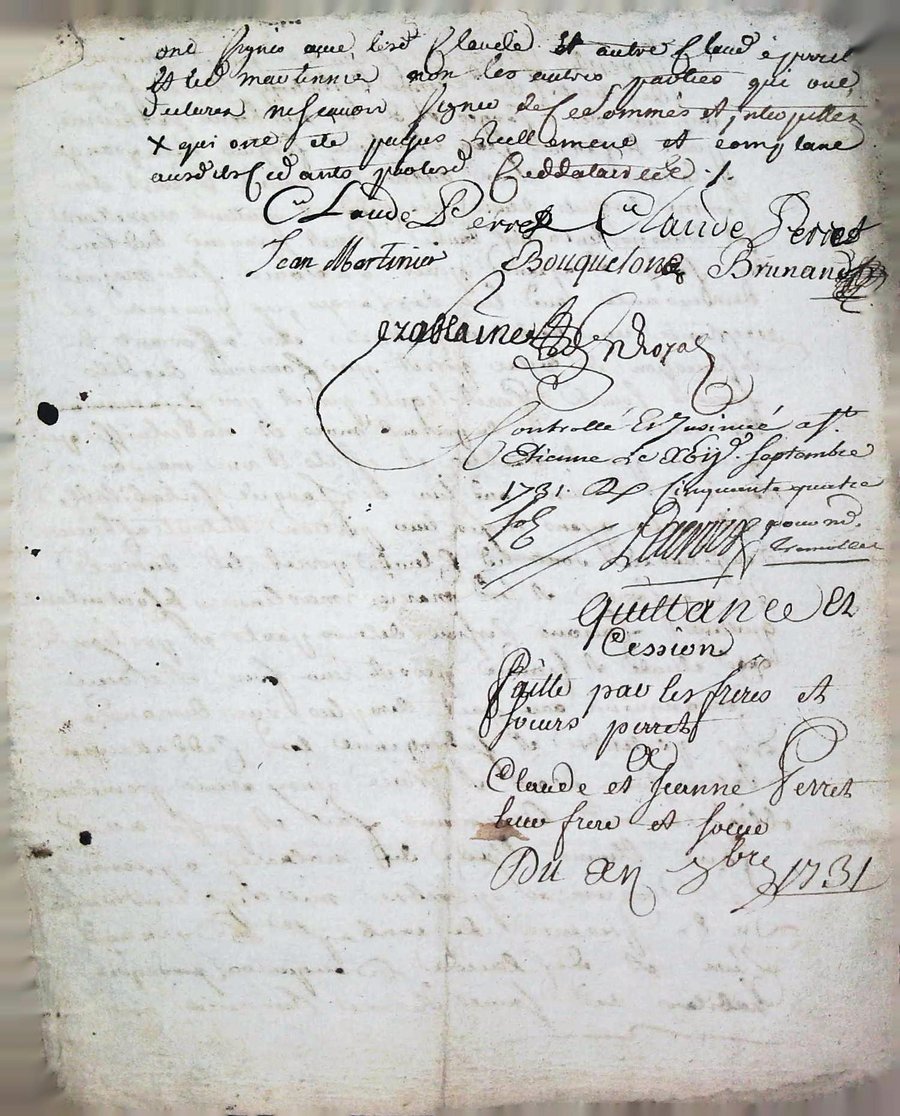 ont signés avec lesd Claude et autre Claude perret
et led martinnié non les autres parties qui ont
declarer nesçavoir signer de ce sommés et interpellez
x qui ont été payés Reellement et comptant
ausdits Cedants par lesd Ceddataires ./.
Claude Perret Claude Perret
Jean Martinier Bouquelone Brunand
erablaine Nre Royal
Controllé Et Insinué a St
Etienne Le xbijd Septembre
1731. R cinquante quatre
sols
pour md.
quittance Et
Cession
Faitte par les freres et
soeurs perret
a
Claude et Jeanne Perret
leur frere et soeur
Du xe 7bre 1731